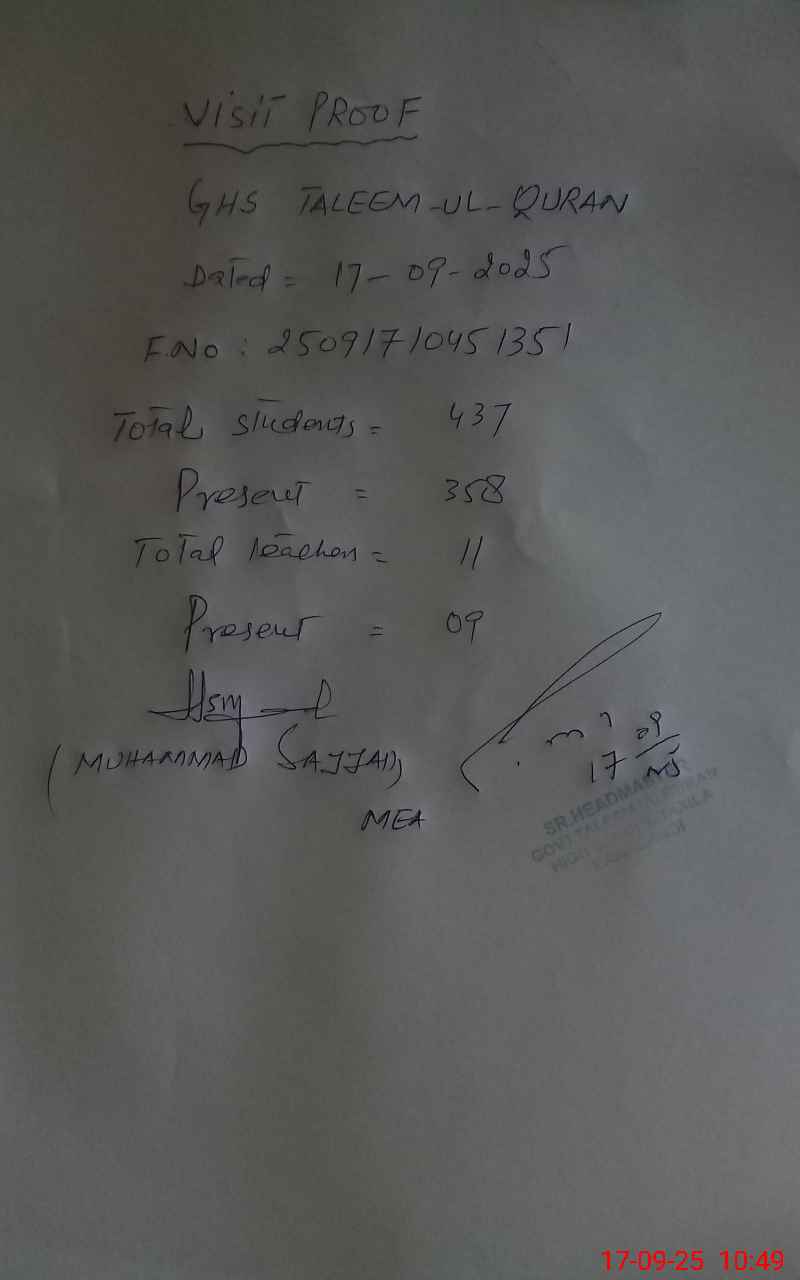 VISIT PROOF
GHS TALEEM-UL-QURAN
Dated = 17-09-2025
F.No : 25091710451351
Total students = 437
Present = 358
Total teachers = 11
Present = 09
(MUHAMMAD SAJJAD)
MEA
17 09
SR.HEADMASTER
GOVT.TALEEM-UL-QURAN
HIGH
17-09-25 10:49